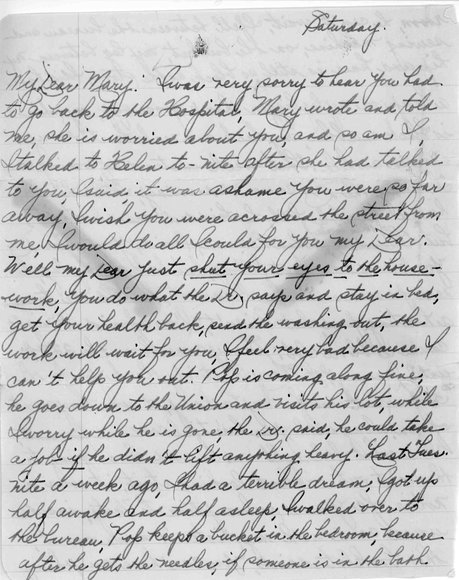 Saturday.
My Dear Mary: I was very sorry to hear you had
to go back to the Hospital, Mary wrote and told
me, she is worried about you, and so am I,
I talked to Helen to-nite after she had talked
to you, I said, it was ashame you were so far
away, I wish you were acrossed the street from
me, I would do all I could for you my Dear.
Well my Dear just shut your eyes to the house-
work, you do what the Dr. says and stay in bed,
get your health back, send the washing out, the
work will wait for you, I feel very bad because I
can't help you out. Pop is coming along fine,
he goes down to the Union and visits his lot, while
I worry while he is gone, the Dr. said, he could take
a job if he didn't lift anything heavy. Last Tues.
nite a week ago, I had a terrible dream, I got up
half awake and half asleep, I walked over to
the bureau, Pop keeps a bucket in the bedroom, because
after he gets the needles, if someone is in the bath